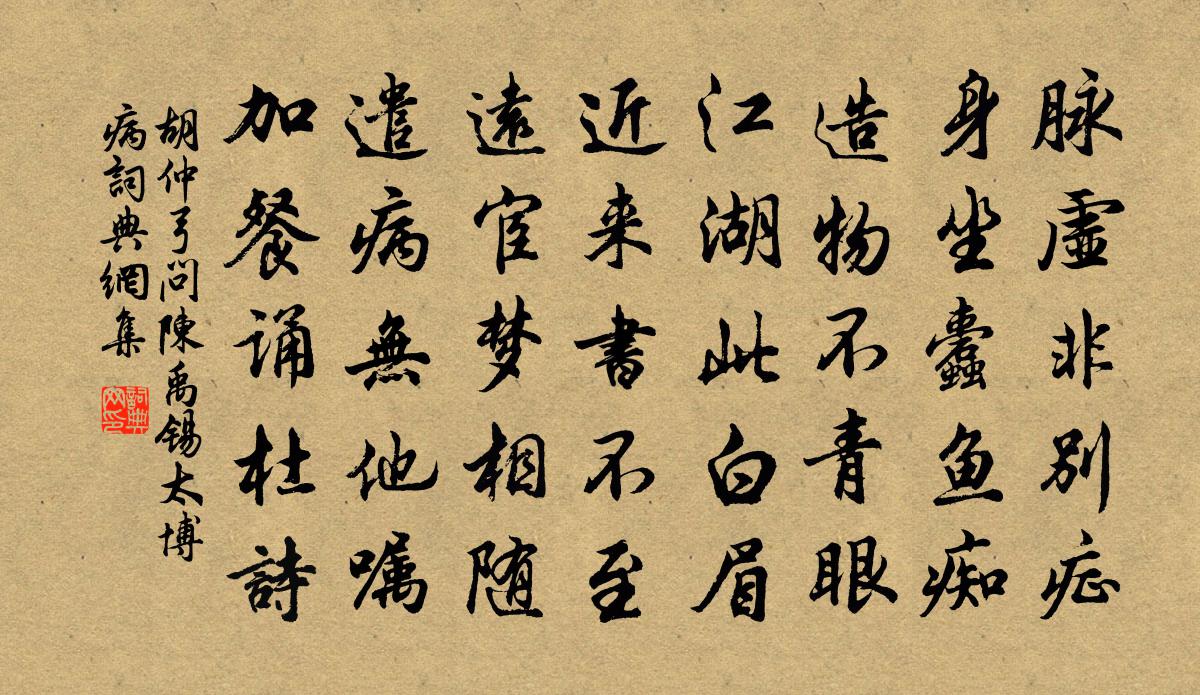 脉虚非别症
身坐蠹鱼痴
造物不青眼
江湖此白眉
近来書不至
遠宦梦相随
遣病無他嘱
加餐诵杜詩
胡仲弓问陳禹锡太博
病詞典網集
詞典
网印